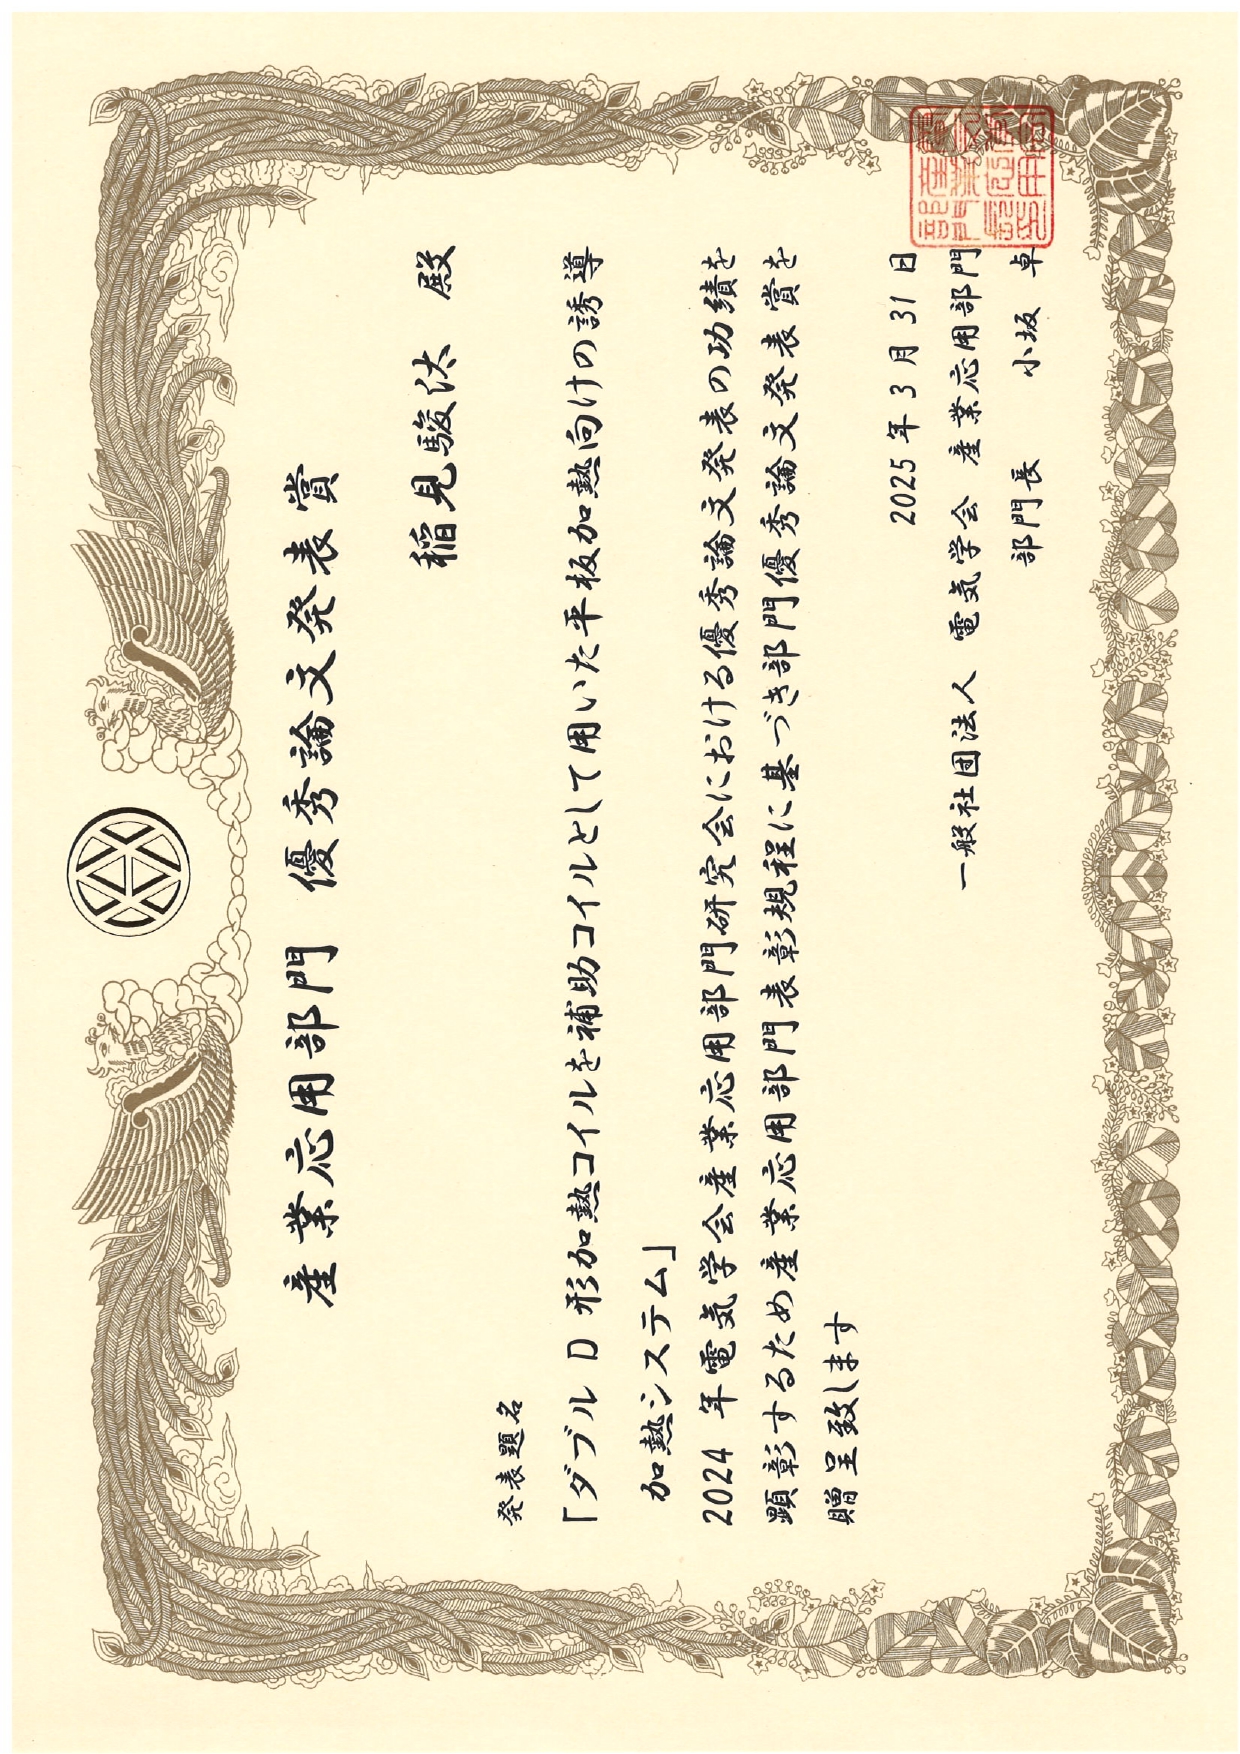 産業応用部門 優秀論文発表賞
稲見駿汰 殿
発表題名
「ダブルD形加熱コイルを補助コイルとして用いた平板加熱向けの誘導
加熱システム」
2024年電気学会産業応用部門研究会における優秀論文発表の功績を
顕彰するため産業応用部門表彰規程に基づき部門優秀論文発表賞を
贈呈致します
2025年3月31日
一般社団法人 電気学会 産業応用部門
部門長 小坂 卓